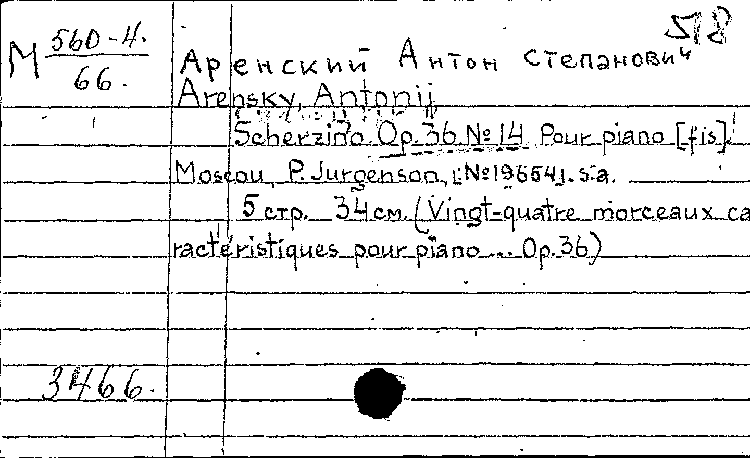 518
М 560-4.
66.
Аренский Антон Степанович
Arensky, Antonij
Scherzino. Op. 36 № 14 Pour piano [fis].
Moscou, P. Jurgenson, [№19654]. s.a.
5 стр. 34 см. (Vingt-quatre morceaux ca
ractéristiques pour piano ... Op. 36)
3466.